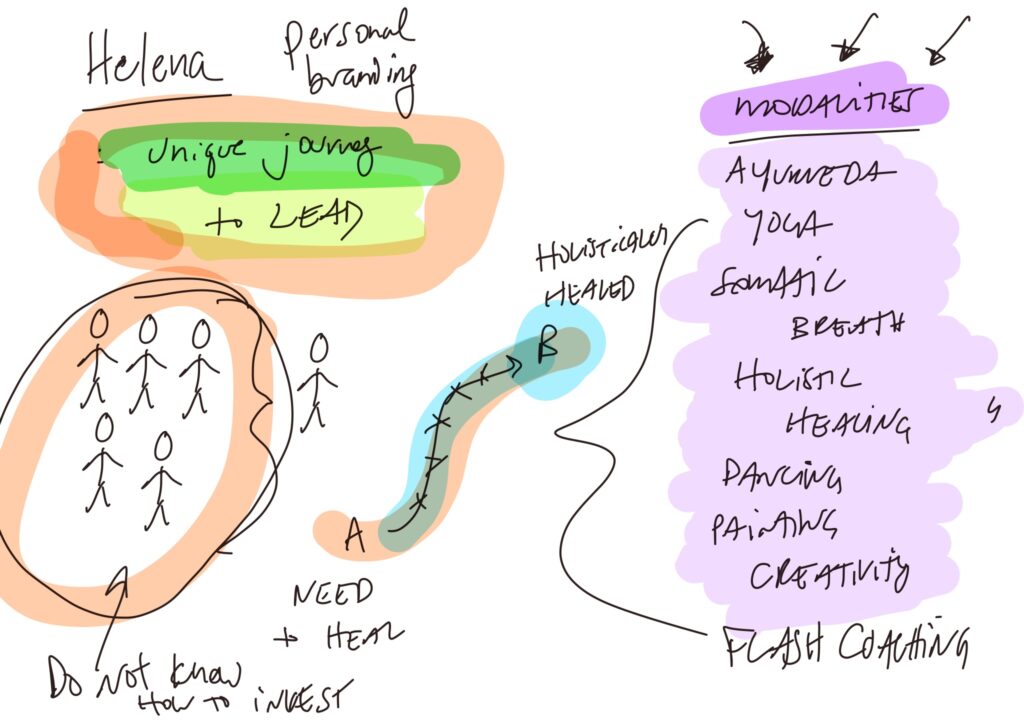 Helena
Personal
branding
Unique journey
to LEAD
HOLISTICALLY
HEALED
B
A
NEED
to HEAL
DO NOT KNOW
HOW TO INVEST
MODALITIES
AYURVEDA
YOGA
SOMATIC
BREATH
HOLISTIC
HEALING
DANCING
PAINTING
CREATIVITY
FLASH COACHING